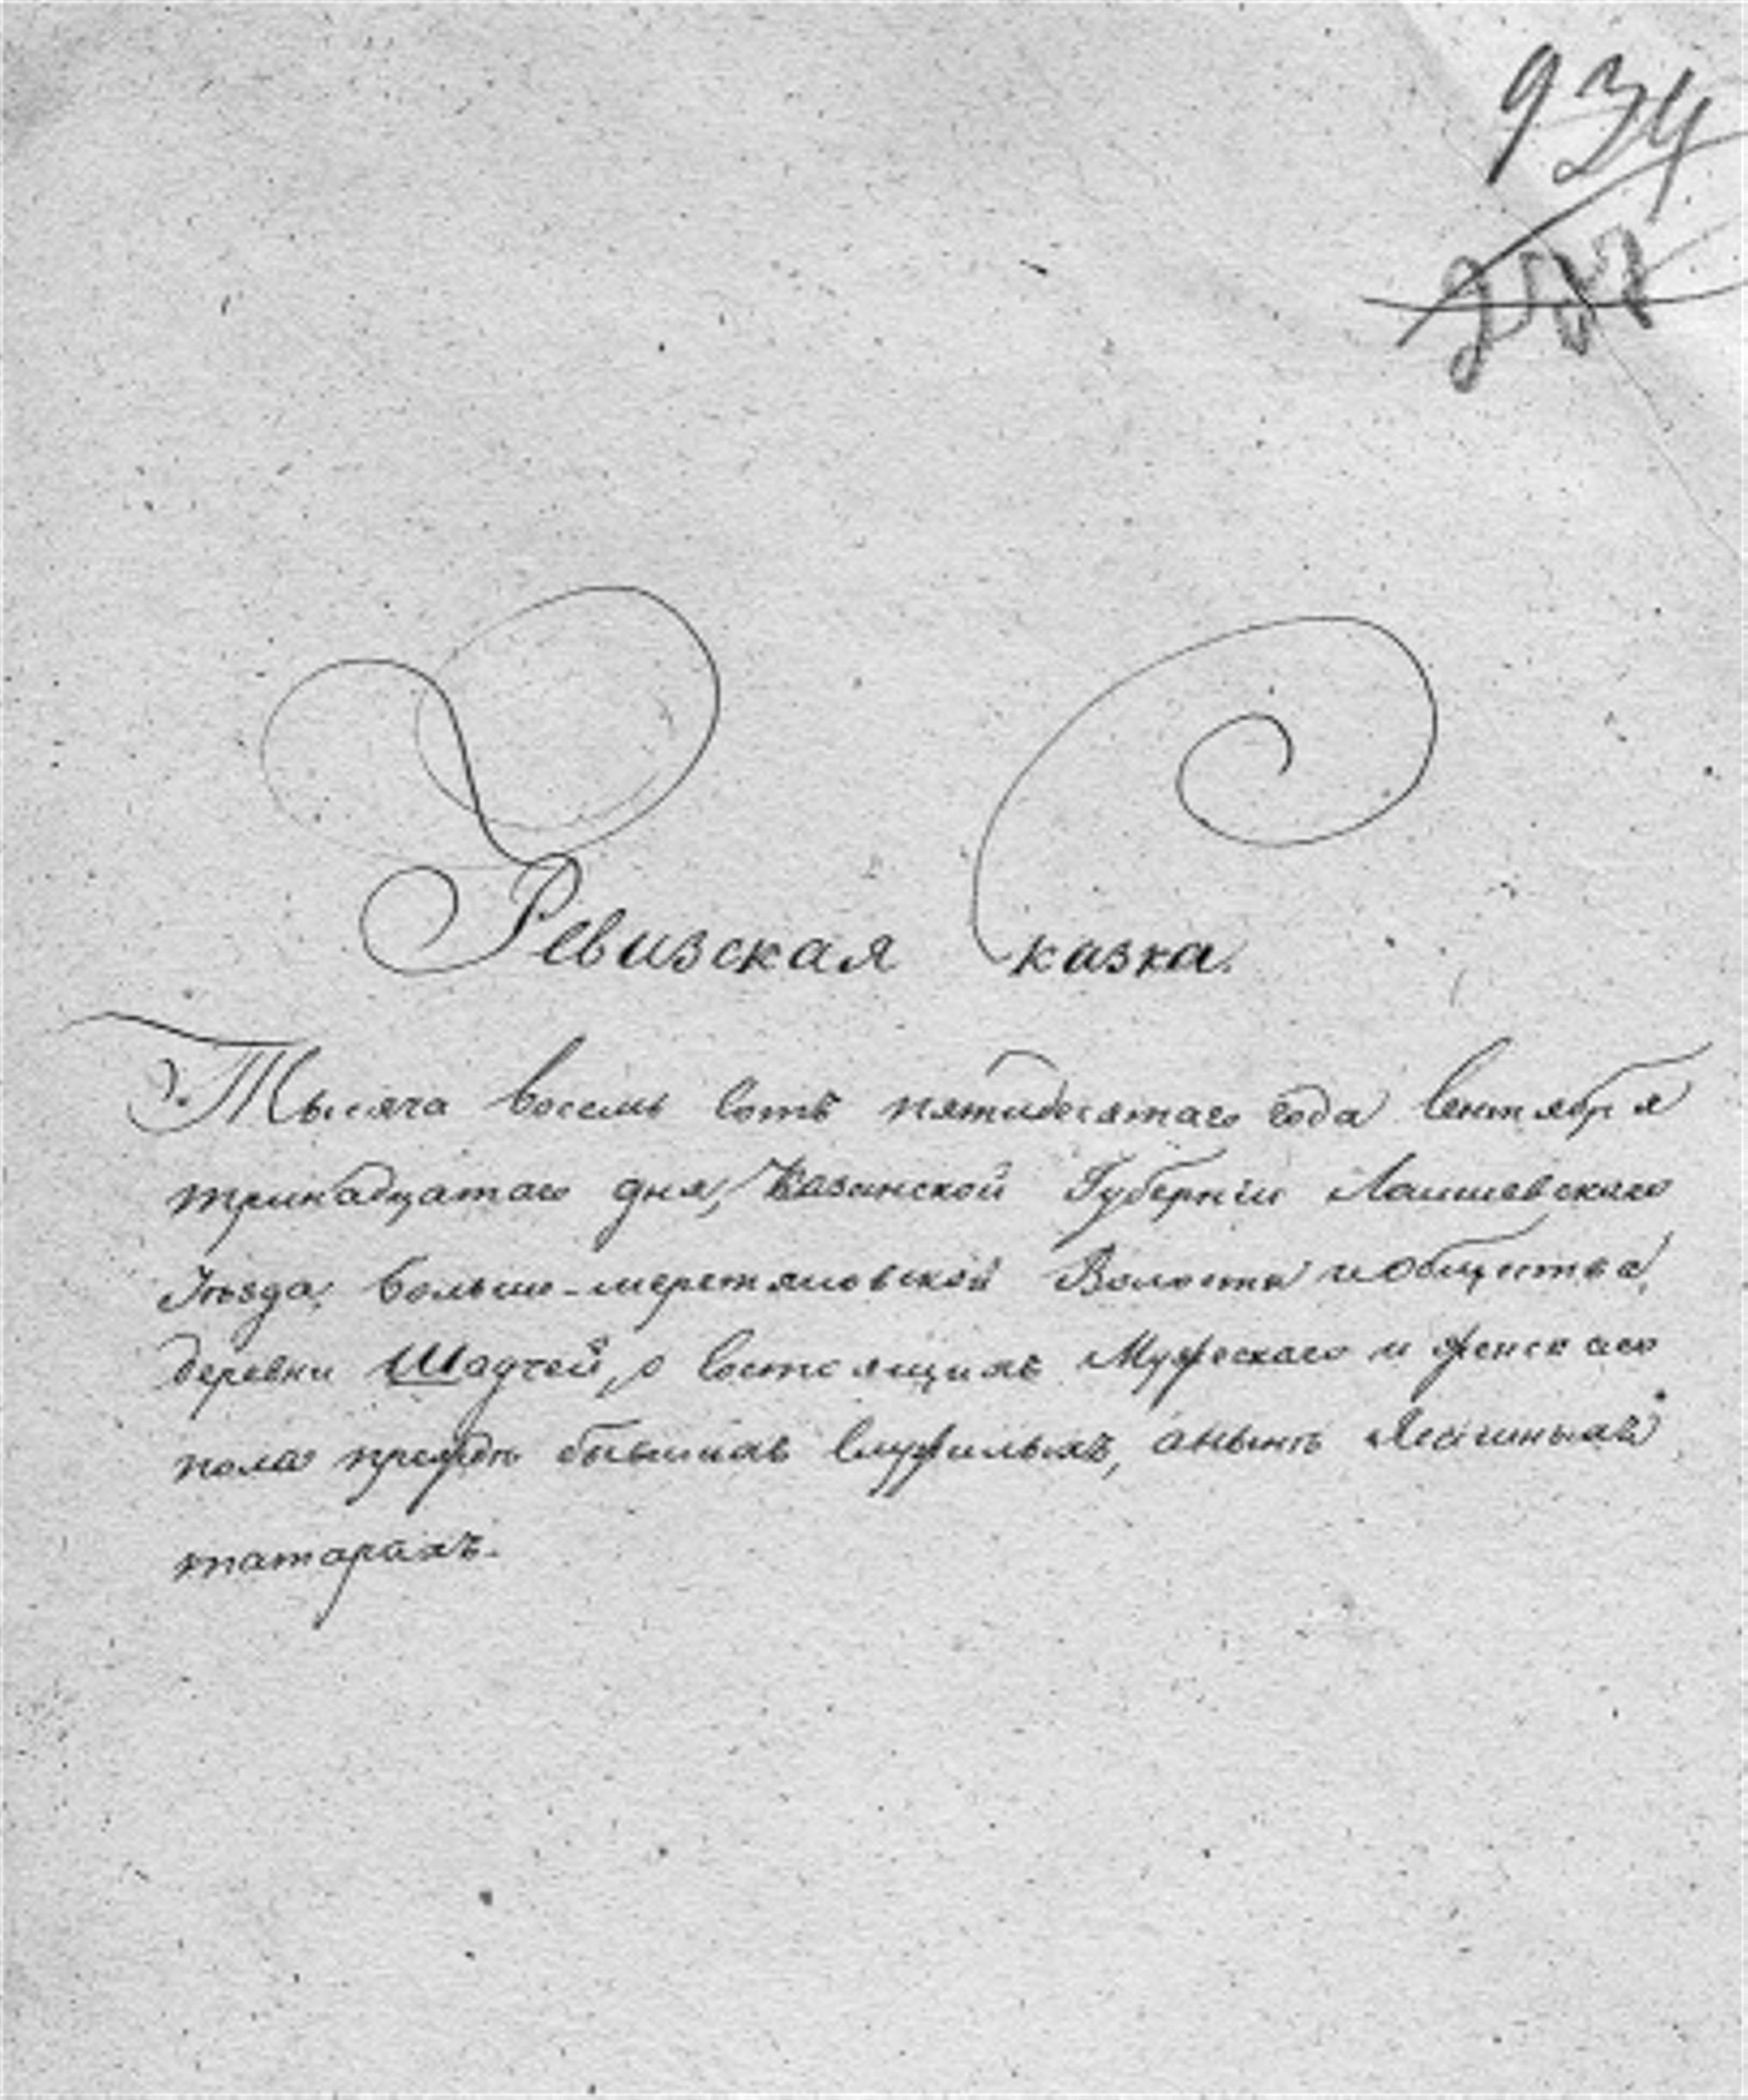 934
Ревизская Сказка.
Тысяча восемь сотъ пятидесятаго года Сентября
тринадцатаго дня, Казанской Губерніи Лаишевскаго
Уѣзда, Больше-меретяковской Волости и общества,
деревни Шадчей, о состоящихъ Мужескаго и женскаго
пола прежде бывшихъ служилыхъ, а нынѣ Ясашныхъ
татарахъ.